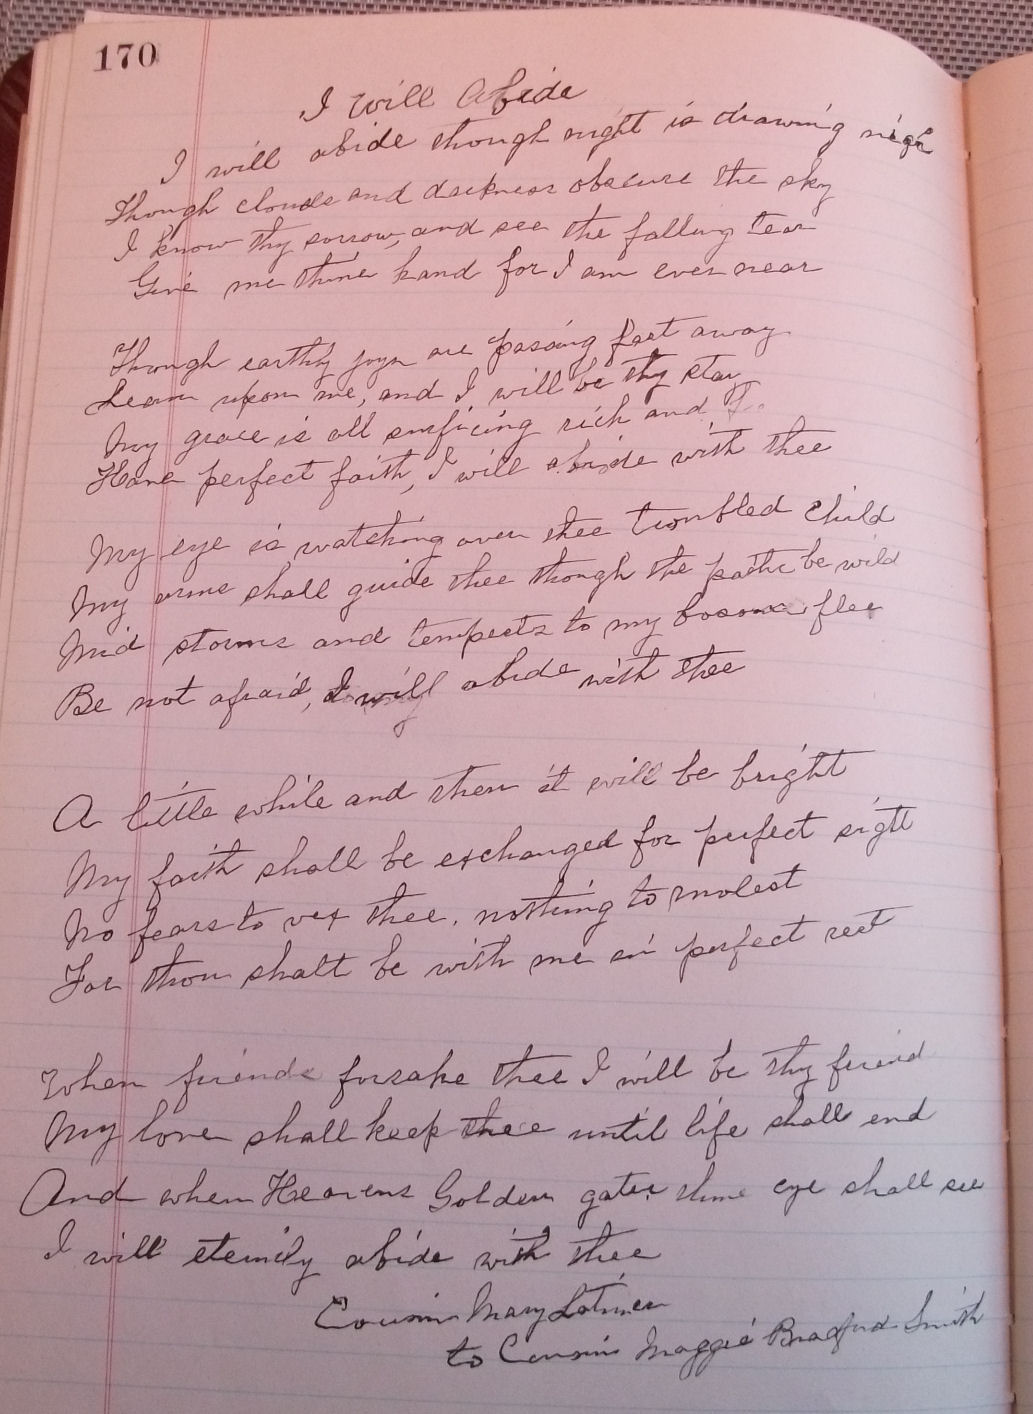 170
I will Abide
I will abide though night is drawing nigh
Though clouds and darkness obscure the sky
I know thy sorrow, and see the falling tear
Give me thine hand for I am ever near
Though earthly joys are passing fast away
Lean upon me, and I will be thy stay
My grace is all suficing rich and
Have perfect faith, I will abide with thee
My eye is watching over thee troubled child
My arms shall guide thee though the path be wild
Mid storms and tempests to my bosom flee
Be not afraid, I will abide with thee
A little while and then it will be bright
My faith shall be exchanged for perfect sight
No fears to vex thee, nothing to molest
For thou shalt be with me in perfect rest
When friends forsake thee I will be thy friend
My love shall keep thee until life shall end
And when Heavens Golden gates thine eye shall see
I will eternily abide with thee
Cousin Mary Latimer
to Cousin Maggie Bradford Smith